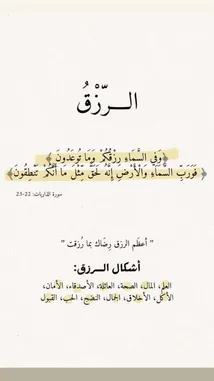 الــرّزْقُ
﴿وَفِي السَّمَاءِ رِزْقُكُمْ وَمَا تُوعَدُونَ﴾
﴿فَوَرَبِّ السَّمَاءِ وَالْأَرْضِ إِنَّهُ لَحَقٌّ مِثْلَ مَا أَنَّكُمْ تَنْطِقُونَ﴾
سورة الذاريات: 22-23
" أعظَم الرزق رِضَاك بما رُزقت "
أشكال الـرزق:
العلم، المال، الصحة، العائلة، الأصدقاء، الأمان،
الأكل، الأخلاق، الجمال، النضج، الحب، القبول